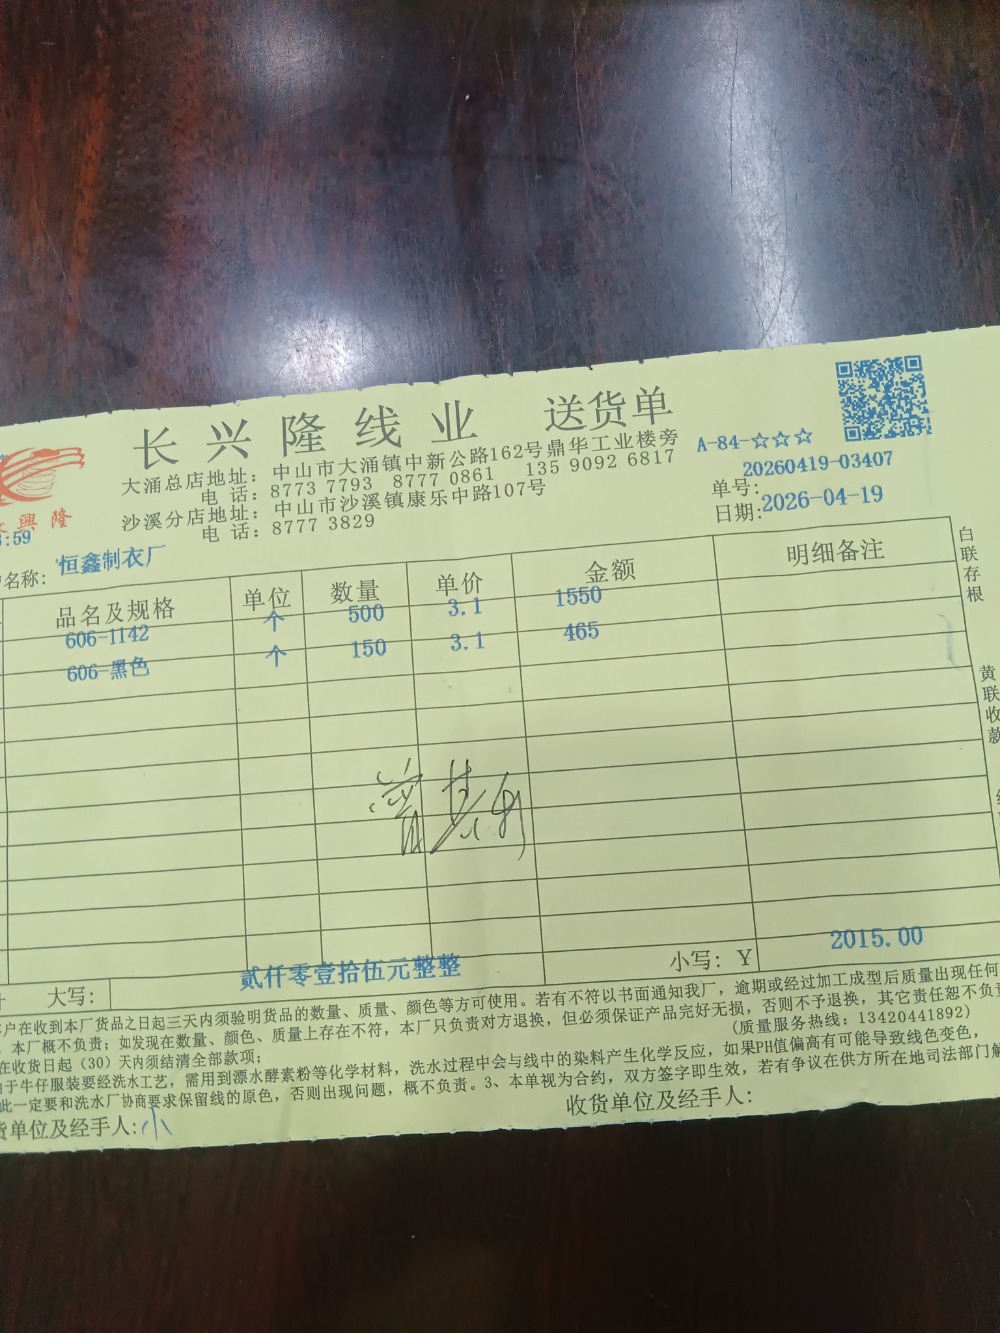 长兴隆线业 送货单
大涌总店地址：中山市大涌镇中新公路162号鼎华工业楼旁
电 话：8773 7793 8777 0861 135 9092 6817
沙溪分店地址：中山市沙溪镇康乐中路107号
电 话：8777 3829
A-84-☆☆☆
20260419-03407
单号：
日期：2026-04-19
興隆
:59
名称：恒鑫制衣厂
品名及规格 单位 数量 单价 金额 明细备注
606-1142 个 500 3.1 1550
606-黑色 个 150 3.1 465
白联存根
黄联收款
大写： 贰仟零壹拾伍元整整 小写：Y 2015.00
户在收到本厂货品之日起三天内须验明货品的数量、质量、颜色等方可使用。若有不符以书面通知我厂，逾期或经过加工成型后质量出现任何
，本厂概不负责；如发现在数量、颜色、质量上存在不符，本厂只负责对方退换，但必须保证产品完好无损，否则不予退换，其它责任恕不负责
(质量服务热线：13420441892)
在收货日起（30）天内须结清全部款项；
于牛仔服装要经洗水工艺，需用到漂水酵素粉等化学材料，洗水过程中会与线中的染料产生化学反应，如果PH值偏高有可能导致线色变色，
此一定要和洗水厂协商要求保留线的原色，否则出现问题，概不负责。3、本单视为合约，双方签字即生效，若有争议在供方所在地司法部门解
货单位及经手人：小
收货单位及经手人：